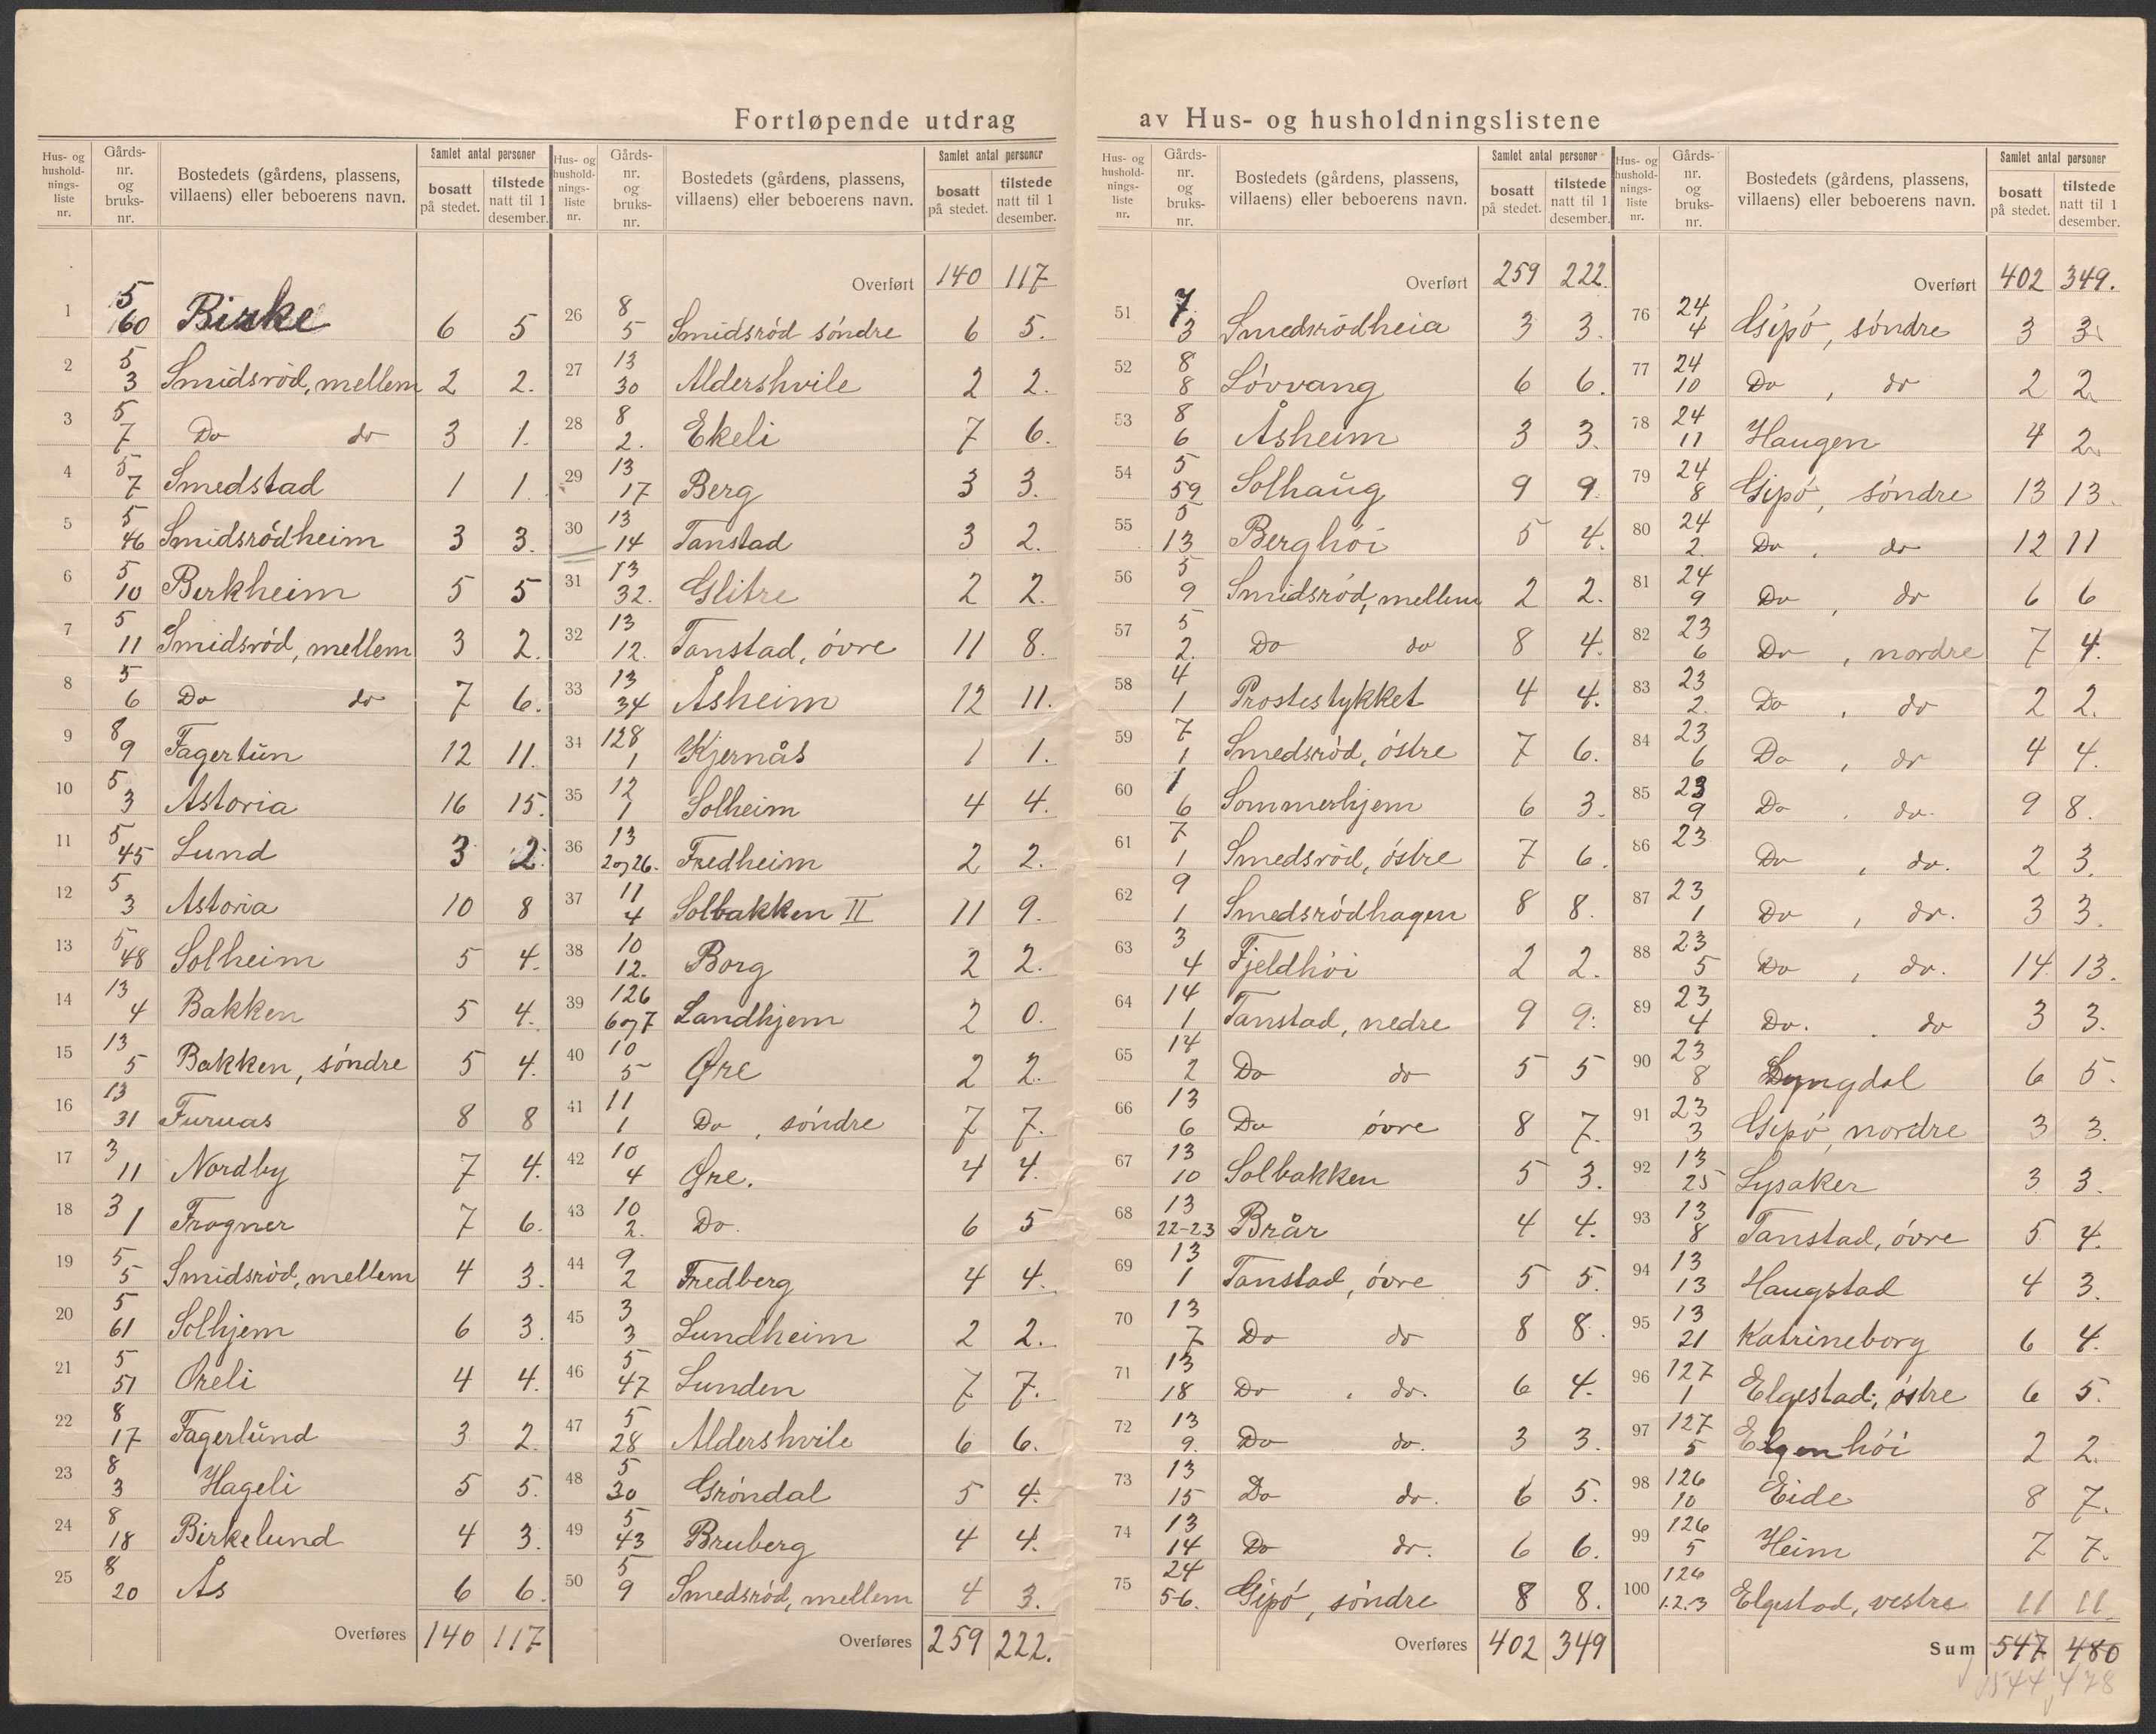 Fortløpende utdrag av Hus- og husholdningslistene
Hus- og husholdningsliste nr. | Gårdsnr. og bruksnr. | Bostedets (gårdens, plassens, villaens) eller beboerens navn. | Samlet antal personer bosatt på stedet. | tilstede natt til 1 desember.
1 | 5 160 | Birke | 6 | 5
2 | 5 3 | Smidsröd, mellem | 2 | 2.
3 | 5 7 | Do do | 3 | 1.
4 | 5 7 | Smedstad | 1 | 1.
5 | 5 46 | Smidsrödheim | 3 | 3.
6 | 5 10 | Berkheim | 5 | 5
7 | 5 11 | Smidsröd, mellem | 3 | 2.
8 | 5 6 | Do do | 7 | 6.
9 | 8 9 | Fagertŭn | 12 | 11.
10 | 5 3 | Astoria | 16 | 15.
11 | 5 45 | Lund | 3 | 2.
12 | 5 3 | Astoria | 10 | 8
13 | 5 48 | Solheim | 5 | 4.
14 | 13 4 | Bakken | 5 | 4.
15 | 13 5 | Bakken, söndre | 5 | 4.
16 | 13 31 | Furuas | 8 | 8
17 | 3 11 | Nordby | 7 | 4.
18 | 3 1 | Frogner | 7 | 6.
19 | 5 5 | Smidsröd, mellem | 4 | 3.
20 | 5 61 | Solhjem | 6 | 3.
21 | 5 51 | Oreli | 4 | 4.
22 | 8 17 | Fagerlŭnd | 3 | 2.
23 | 8 3 | Hageli | 5 | 5.
24 | 8 18 | Birkelund | 4 | 3.
25 | 8 20 | Ås | 6 | 6.
Overføres | 140 | 117
Hus- og husholdningsliste nr. | Gårdsnr. og bruksnr. | Bostedets (gårdens, plassens, villaens) eller beboerens navn. | Samlet antal personer bosatt på stedet. | tilstede natt til 1 desember.
Overført | 140 | 117
26 | 8 5 | Smidsröd söndre | 6 | 5.
27 | 13 30 | Aldershvile | 2 | 2.
28 | 8 2. | Ekeli | 7 | 6.
29 | 13 17 | Berg | 3 | 3.
30 | 13 14 | Tanstad | 3 | 2.
31 | 13 32. | Glitre | 2 | 2.
32 | 13 12. | Tanstad, övre | 11 | 8.
33 | 13 34 | Åsheim | 12 | 11.
34 | 128 1 | Kjernås | 1 | 1.
35 | 12 1 | Solheim | 4 | 4.
36 | 13 2 og 26. | Fredheim | 2 | 2.
37 | 11 4 | Solbakken II | 11 | 9.
38 | 10 12. | Borg | 2 | 2.
39 | 126 6 og 7 | Landhjem | 2 | 0.
40 | 10 5 | Øre | 2 | 2.
41 | 11 1 | Do, söndre | 7 | 7.
42 | 10 4 | Øre. | 4 | 4.
43 | 10 2. | Do. | 6 | 5
44 | 9 2 | Fredberg | 4 | 4.
45 | 3 3 | Lundheim | 2 | 2.
46 | 5 47 | Lunden | 7 | 7.
47 | 5 28 | Aldershvile | 6 | 6.
48 | 5 30 | Gröndal | 5 | 4.
49 | 5 43 | Bruberg | 4 | 4.
50 | 5 9 | Smedsröd, mellem | 4 | 3.
Overføres | 259 | 222.
Hus- og husholdningsliste nr. | Gårdsnr. og bruksnr. | Bostedets (gårdens, plassens, villaens) eller beboerens navn. | Samlet antal personer bosatt på stedet. | tilstede natt til 1 desember.
Overført | 259 | 222
51 | 7 3 | Smedsrödheia | 3 | 3.
52 | 8 8 | Lövvang | 6 | 6.
53 | 8 6 | Åsheim | 3 | 3.
54 | 5 59 | Solhaŭg | 9 | 9.
55 | 5 13 | Berghöi | 5 | 4.
56 | 5 9 | Smidsröd, mellem | 2 | 2.
57 | 5 2. | Do do | 8 | 4.
58 | 4 1 | Prostestykket | 4 | 4.
59 | 7 1 | Smedsröd, östre | 7 | 6.
60 | 1 6 | Sommerhjem | 6 | 3.
61 | 7 1 | Smedsröd, östre | 7 | 6.
62 | 9 1 | Smedsrödhagen | 8 | 8.
63 | 3 4 | Fjeldhöi | 2 | 2.
64 | 14 1 | Tanstad, nedre | 9 | 9.
65 | 14 2 | Do do | 5 | 5
66 | 13 6 | Do övre | 8 | 7.
67 | 13 10 | Solbakken | 5 | 3.
68 | 13 22-23 | Brår | 4 | 4.
69 | 13 1 | Tanstad, övre | 5 | 5.
70 | 13 7 | Do do | 8 | 8.
71 | 13 18 | Do, do. | 6 | 4.
72 | 13 9. | Do do. | 3 | 3.
73 | 13 15 | Do do. | 6 | 5.
74 | 13 14 | Do do. | 6 | 6.
75 | 24 56. | Gipö, söndre | 8 | 8.
Overføres | 402 | 349
Hus- og husholdningsliste nr. | Gårdsnr. og bruksnr. | Bostedets (gårdens, plassens, villaens) eller beboerens navn. | Samlet antal personer bosatt på stedet. | tilstede natt til 1 desember.
Overført | 402 | 349.
76 | 24 4 | Gipö, söndre | 3 | 3.
77 | 24 10 | Do, do | 2 | 2.
78 | 24 11 | Haugen | 4 | 2.
79 | 24 8 | Gipö, söndre | 13 | 13.
80 | 24 2. | Do, do | 12 | 11
81 | 24 9 | Do, do | 6 | 6
82 | 23 6 | Do, nordre | 7 | 4.
83 | 23 2. | Do, do | 2 | 2.
84 | 23 6 | Do, do | 4 | 4.
85 | 23 9 | Do, do. | 9 | 8.
86 | 23 | Do, do. | 2 | 3.
87 | 23 1 | Do, do. | 3 | 3.
88 | 23 5 | Do, do. | 14 | 13.
89 | 23 4 | Do. do | 3 | 3.
90 | 23 8 | Lyngdal | 6 | 5.
91 | 23 3 | Gipö, nordre | 3 | 3.
92 | 13 25 | Lysaker | 3 | 3.
93 | 13 8 | Tanstad, övre | 5 | 4.
94 | 13 13 | Haugstad | 4 | 3.
95 | 13 21 | Katrineborg | 6 | 4.
96 | 127 1 | Elgestad, östre | 6 | 5.
97 | 127 5 | Elgenhöi | 2 | 2.
98 | 126 10 | Eide | 8 | 7.
99 | 126 5 | Heim | 7 | 7.
100 | 126 1.2.3 | Elgestad, vestre | 11 | 11.
Sum | 547 | 480
544 478